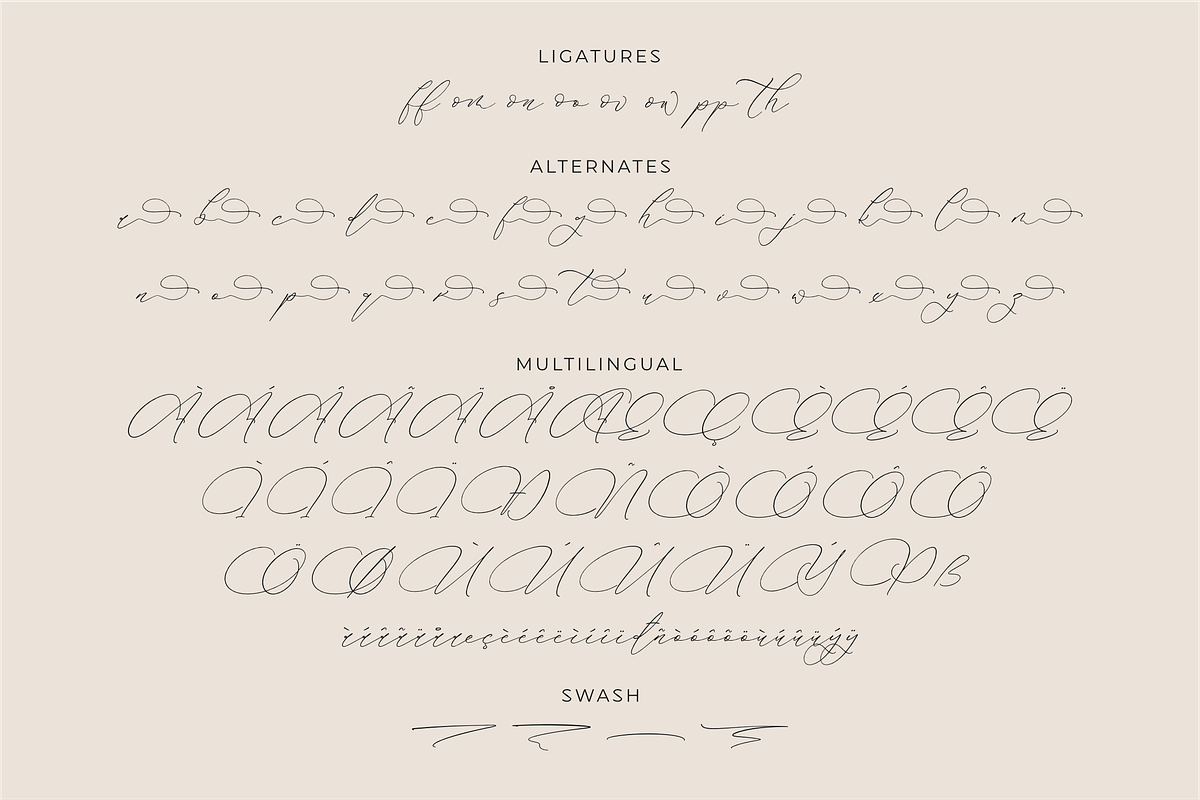 LIGATURES
ff om on oo ov ow pp Th
ALTERNATES
a b c d e f g h i j k l m
n o p q r s t u v w x y z
MULTILINGUAL
À Á Â Ã Ä Å Æ Ç È É Ê Ë
Ì Í Î Ï Ð Ñ Ò Ó Ô Õ
Ö Ø Ù Ú Û Ü Ý Þ ß
à á â ã ä å æ ç è é ê ë ì í î ï ð ñ ò ó ô õ ö ù ú û ü ý ÿ
SWASH